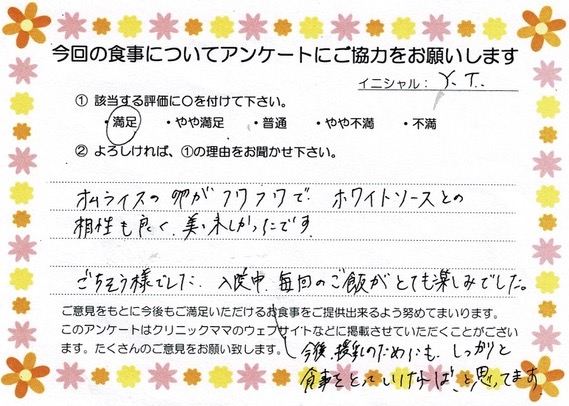 今回の食事についてアンケートにご協力をお願いします
イニシャル： Y.T.
① 該当する評価に〇を付けて下さい。
・満足 ・やや満足 ・普通 ・やや不満 ・不満
② よろしければ、①の理由をお聞かせ下さい。
オムライスの卵がフワフワで、ホワイトソースとの
相性も良く、美味しかったです。
ごちそう様でした。入院中、毎回のご飯がとても楽しみでした。
ご意見をもとに今後もご満足いただけるお食事をご提供出来るよう努めてまいります。
このアンケートはクリニックママのウェブサイトなどに掲載させていただくことがござい
ます。たくさんのご意見をお願い致します。
今後、授乳のためにも、しっかりと
食事をとっていければ、と思ってます。